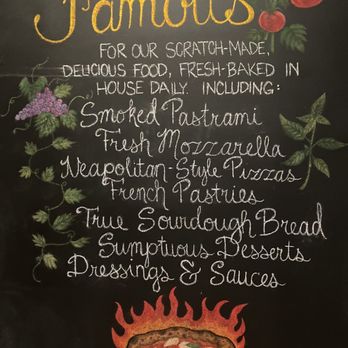 Famous
FOR OUR SCRATCH-MADE,
DELICIOUS FOOD, FRESH-BAKED IN
HOUSE DAILY. INCLUDING:
Smoked Pastrami
Fresh Mozzarella
Neapolitan-Style Pizzas
French Pastries
True Sourdough Bread
Sumptuous Desserts
Dressings & Sauces